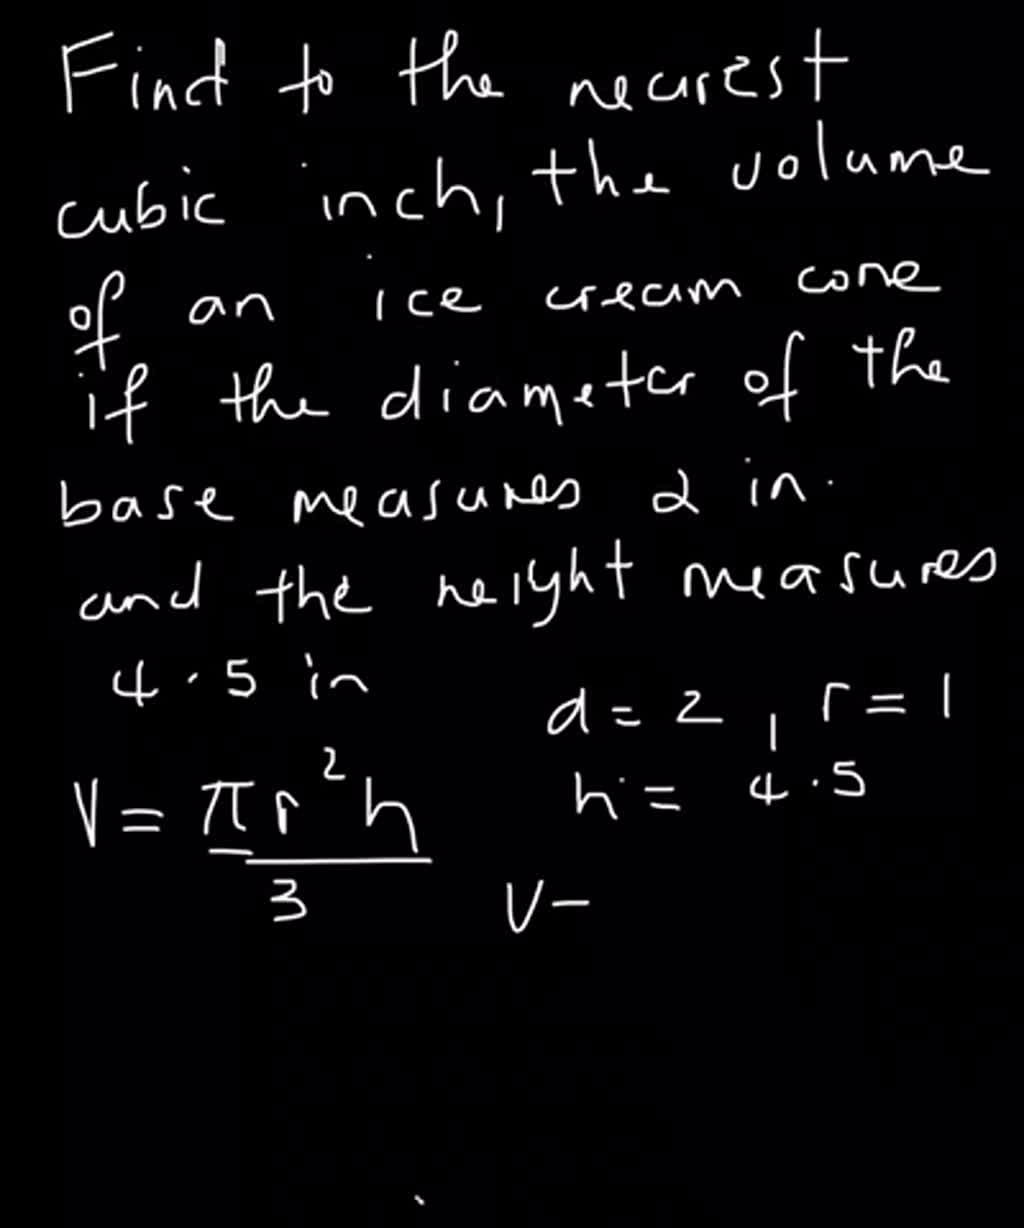 Find to the nearest
cubic inch, the volume
of an ice cream cone
if the diameter of the
base measures 2 in.
and the height measures
4.5 in
d = 2, r = 1
h = 4.5
V = πr²h
3
V =